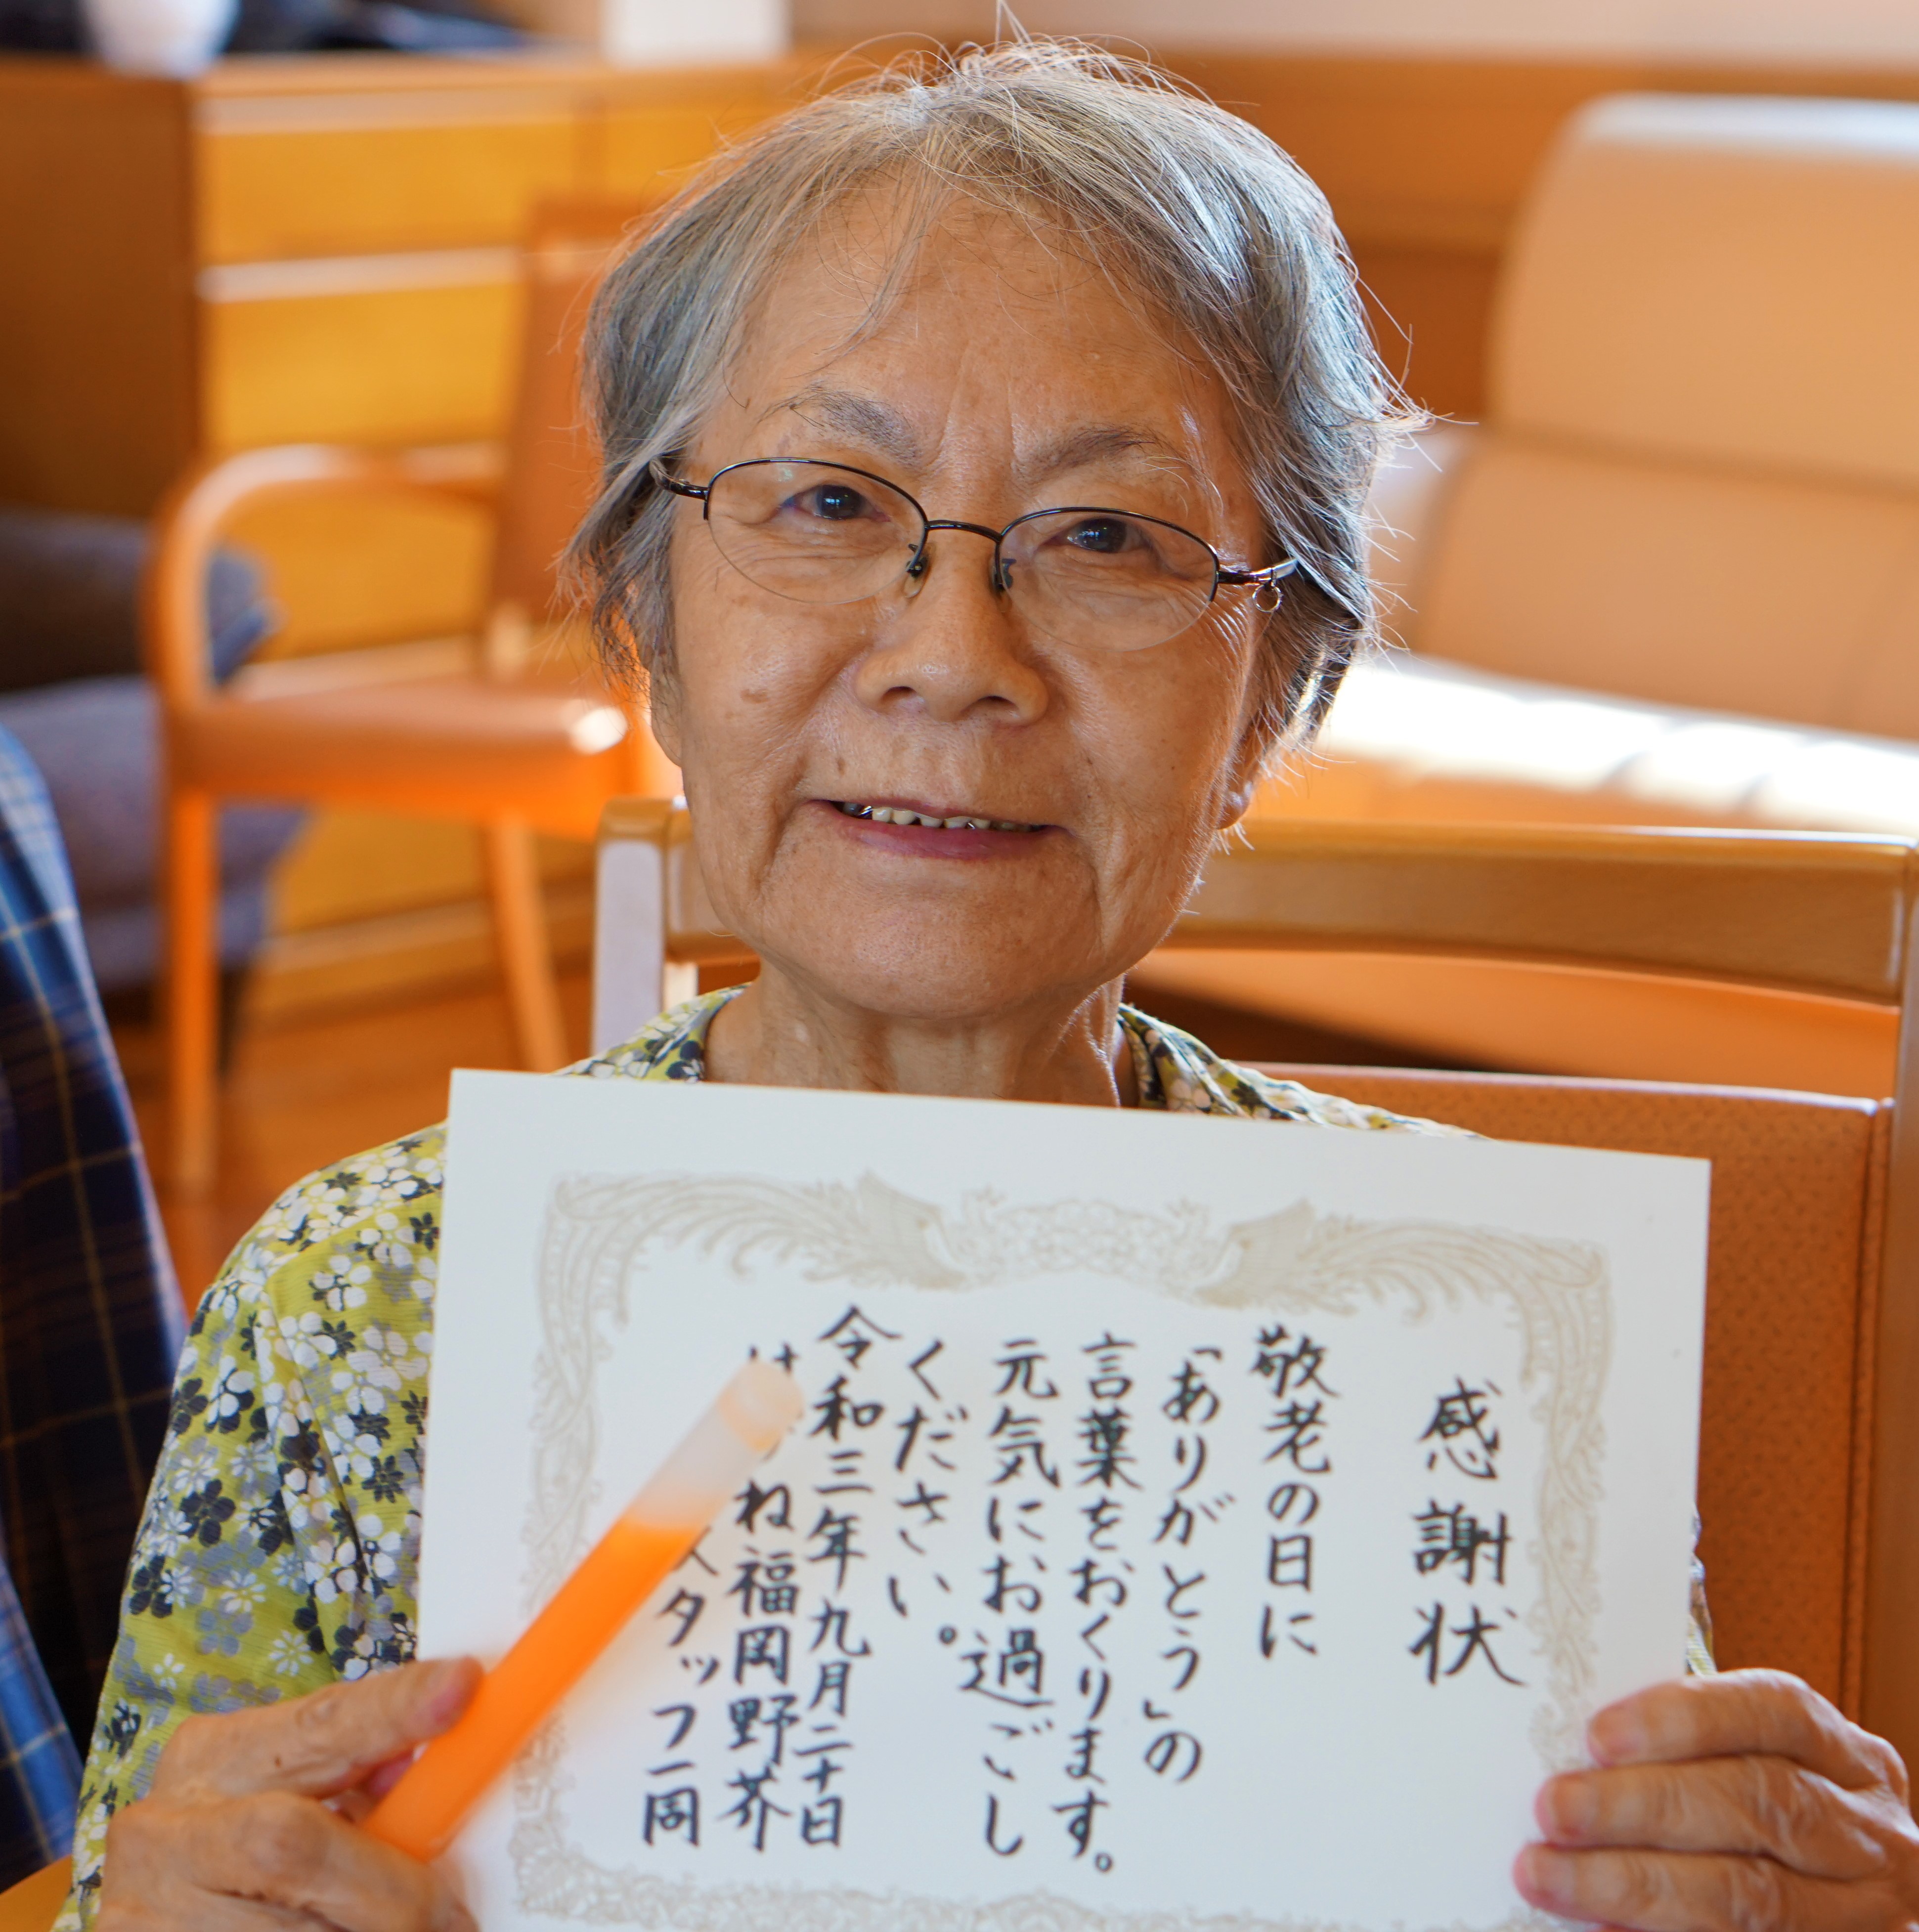 感謝状
敬老の日に
「ありがとう」の
言葉をおくります。
元気にお過ごし
ください。
令和三年九月二十日
ね福岡野芥
スタッフ一同